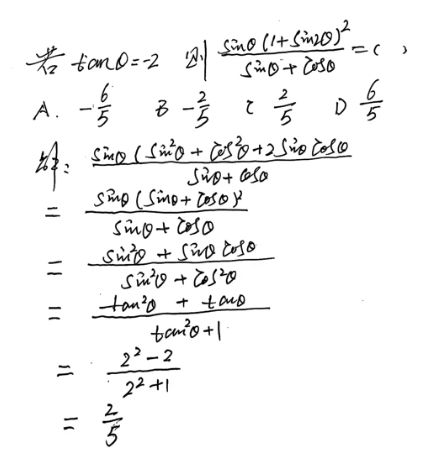 若 tanθ=-2 则 \frac{sinθ(1+sin2θ)^2}{sinθ+cosθ}=( )
A. -\frac{6}{5} B -\frac{2}{5} C \frac{2}{5} D \frac{6}{5}
解: \frac{sinθ(sin^2θ+cos^2θ+2sinθcosθ}{sinθ+cosθ}
= \frac{sinθ(sinθ+cosθ)^2}{sinθ+cosθ}
= \frac{sin^2θ+sinθcosθ}{sin^2θ+cos^2θ}
= \frac{tan^2θ+tanθ}{tan^2θ+1}
= \frac{2^2-2}{2^2+1}
= \frac{2}{5}